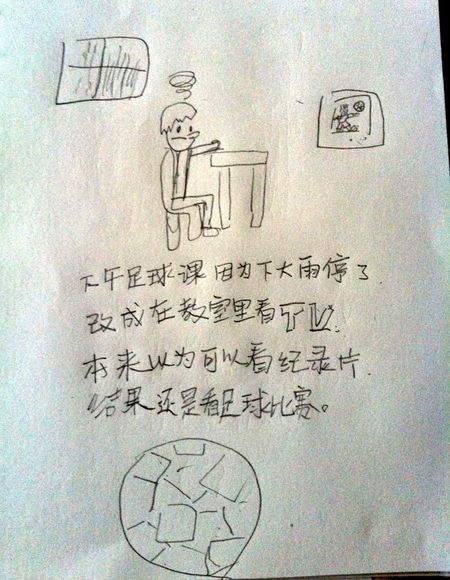 下午足球课因为下大雨停了.
改成在教室里看TV.
本来以为可以看纪录片.
结果还是看足球比赛。